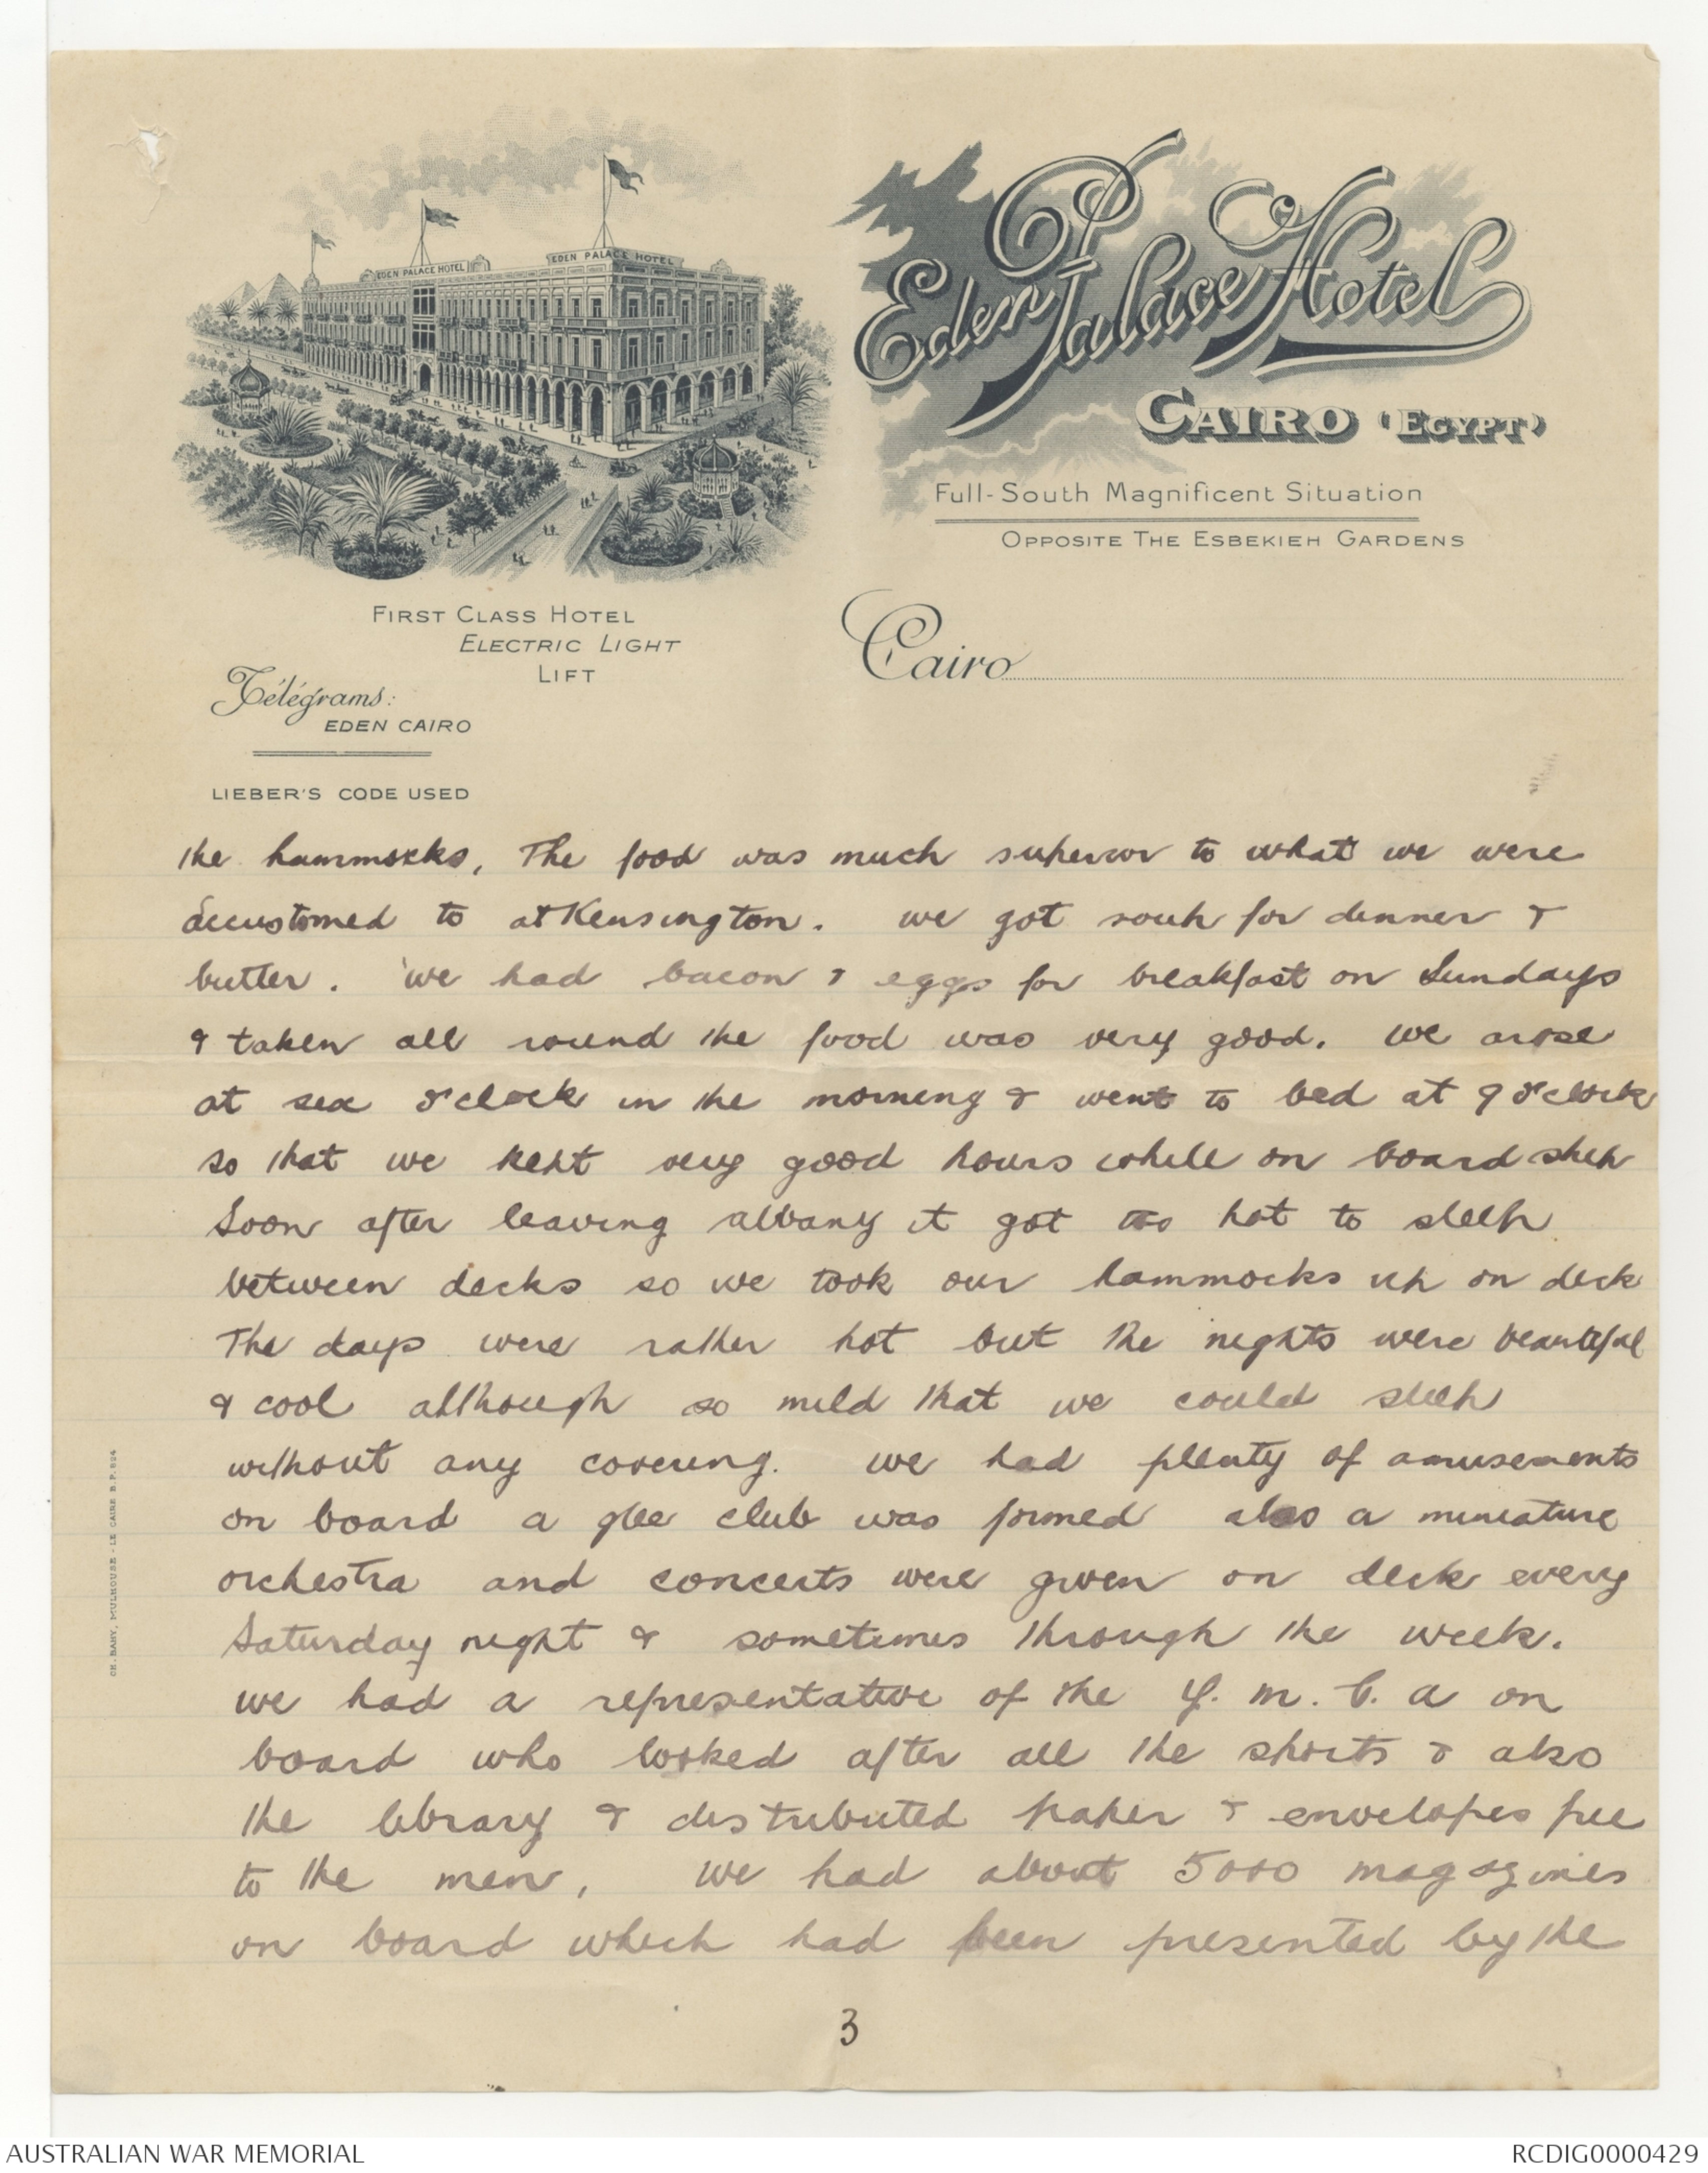 EDEN PALACE HOTEL
EDEN PALACE HOTEL
Eden Palace Hotel
CAIRO (EGYPT)
Full-South Magnificent Situation
OPPOSITE THE ESBEKIEH GARDENS
FIRST CLASS HOTEL
ELECTRIC LIGHT
LIFT
Télégrams:
EDEN CAIRO
LIEBER'S CODE USED
Cairo
the hammocks, The food was much superior to what we were
accustomed to at Kensington. we got soup for dinner &
butter. we had bacon & eggs for breakfast on Sundays
& taken all round the food was very good. we arose
at six o'clock in the morning & went to bed at 9 o'clock
so that we kept very good hours while on board ship
Soon after leaving albany it got too hot to sleep
between decks so we took our hammocks up on deck
The days were rather hot but the nights were beautiful
& cool although so mild that we could sleep
without any covering. we had plenty of amusements
on board a glee club was formed also a miniature
orchestra and concerts were given on deck every
Saturday night & sometimes through the week.
we had a representative of the Y. m. C. a on
board who looked after all the shorts & also
the library & distributed paper & envelopes free
to the men, we had about 5000 magazines
on board which had been presented by the
3
CH. BAHY, MULHOUSE - LE CAIRE B.P. 824
AUSTRALIAN WAR MEMORIAL
RCDIG0000429